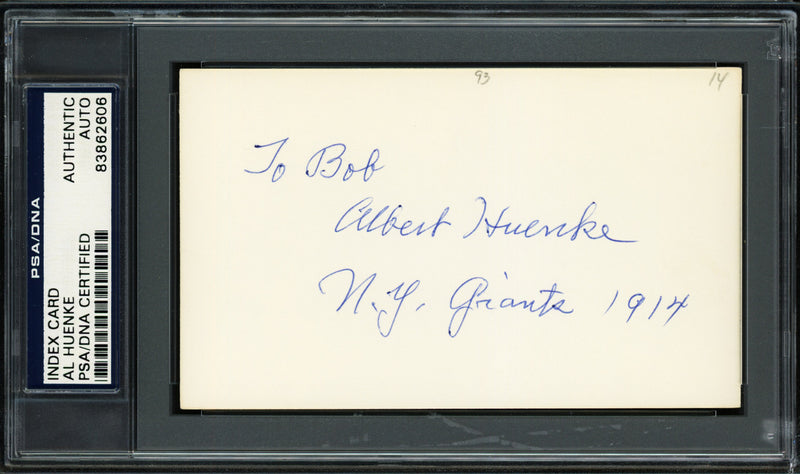 93
14
To Bob
Albert Huenke
N.Y. Giants 1914
PSA/DNA
INDEX CARD
AL HUENKE
PSA/DNA CERTIFIED
AUTHENTIC
AUTO
83862606